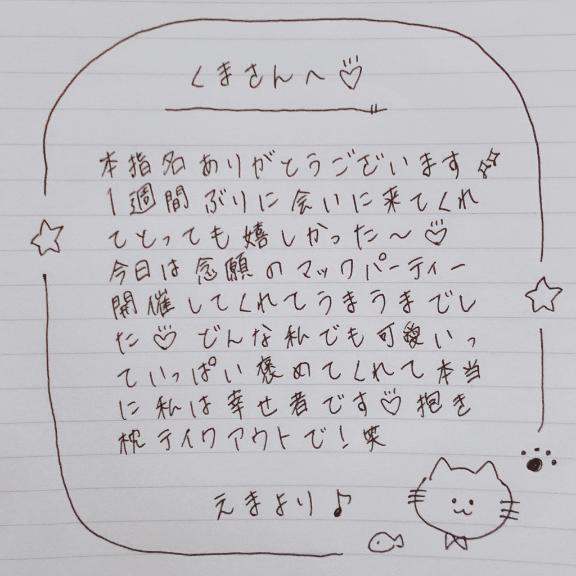 くまさんへ♡
本指名ありがとうございます
1週間ぶりに会いに来てくれ
てとっても嬉しかった〜♡
今日は念願のマックパーティー
開催してくれてうまうまでし
た♡どんな私でも可愛いっ
ていっぱい褒めてくれて本当
に私は幸せ者です♡抱き
枕テイクアウトで!笑
えまより♪